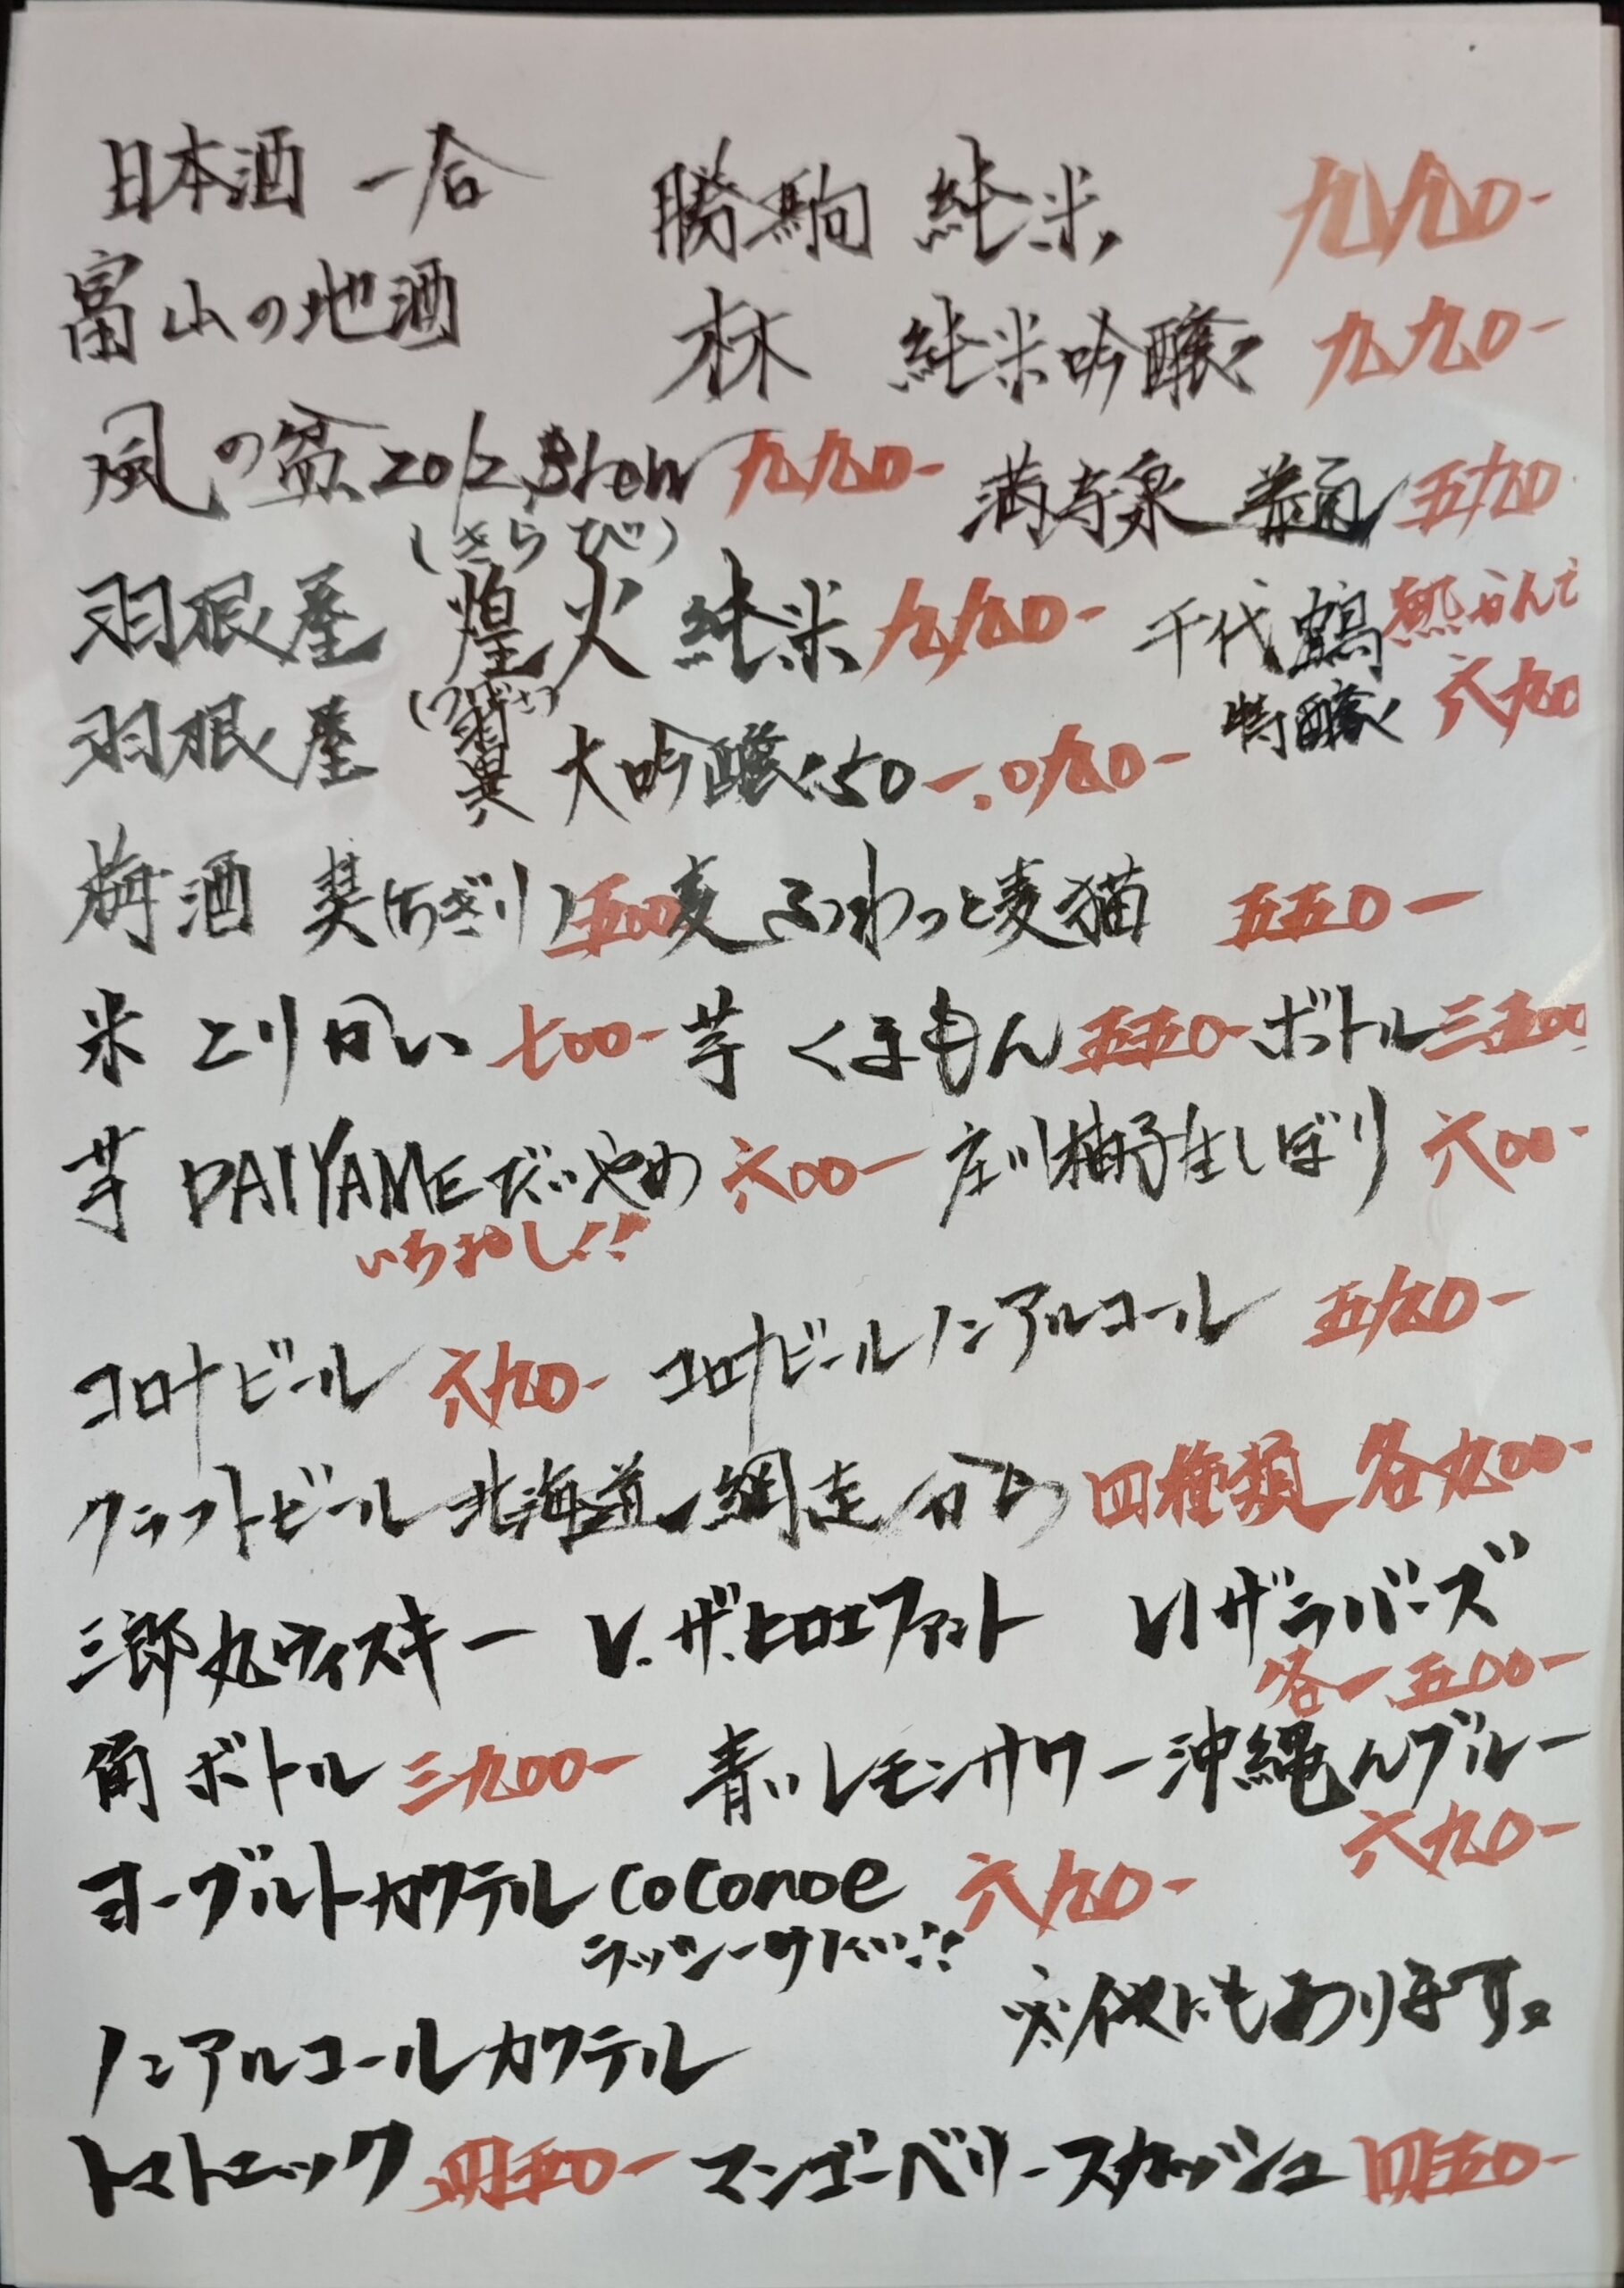 日本酒 一合 勝駒 純米 九九〇-
富山の地酒 林 純米吟醸 九九〇-
風の盆 九九〇- 満寿泉 普通 五九〇
羽根屋 煌火(きらび) 純米 九九〇- 千代鶴 熱かんで
特醸 六九〇
羽根屋 翼(つばさ) 大吟醸50 一.〇九〇-
梅酒 (ちぎり) 五〇〇 麦 ふわっと麦猫 五五〇-
米 とりかい 七〇〇- 芋 くまもん 五五〇- ボトル 三五〇〇
芋 DAIYAME だいやめ 六〇〇- 庄川柚子生しぼり 六〇〇-
いちおし!!
コロナビール 六九〇- コロナビールノンアルコール 五九〇-
クラフトビール 北海道 網走から 四種類 各九〇〇-
三郎丸ウィスキー V.ザ.ヒロエファント VIザラバーズ
各一五〇〇-
角 ボトル 三九〇〇- 青いレモンサワー 沖縄んブルー
六九〇-
ヨーグルトカクテル COCONOE 六九〇-
ラッシーサワー!!
※他にもあります。
ノンアルコールカクテル
トマトニック 四五〇- マンゴーベリースカッシュ 四五〇-